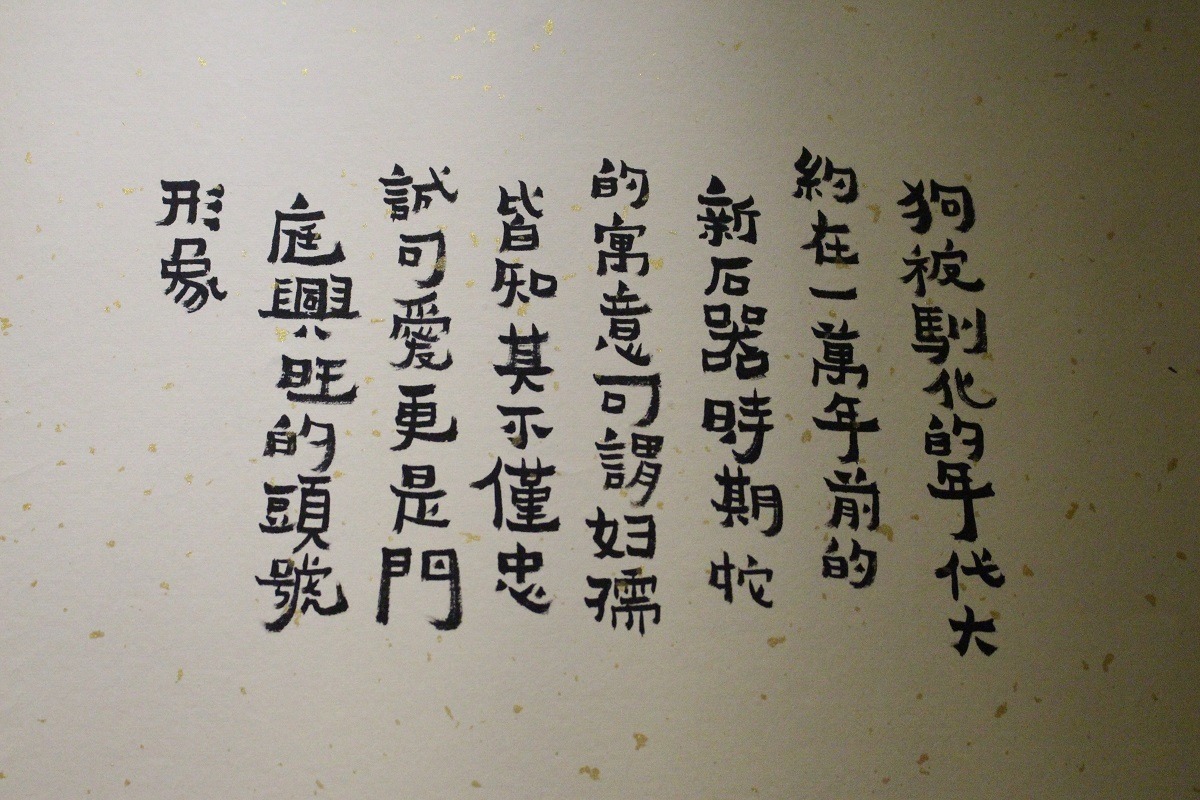 狗被馴化的年代大
約在一萬年前的
新石器時期牠
的寓意可謂妇孺
皆知其不僅忠
誠可愛更是門
庭興旺的頭號
形象